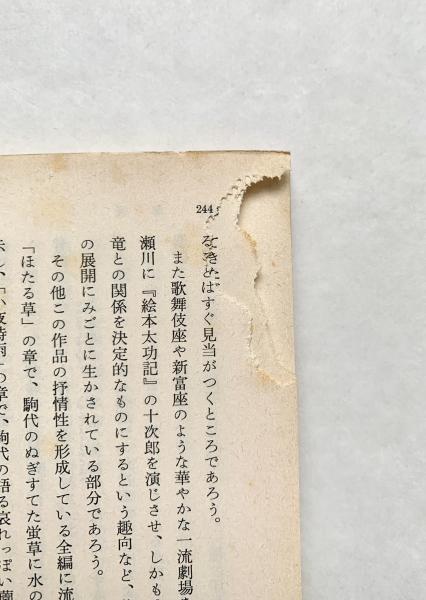 244
ばすぐ見当がつくところであろう。
また歌舞伎座や新富座のような華やかな一流劇場
瀬川に『絵本太功記』の十次郎を演じさせ、しかも
竜との関係を決定的なものにするという趣向など、
の展開にみごとに生かされている部分であろう。
その他この作品の抒情性を形成している全編に流
「ほたる草」の章で、駒代のぬぎすてた蛍草に水の
の章で、駒代の語る哀れっぽい